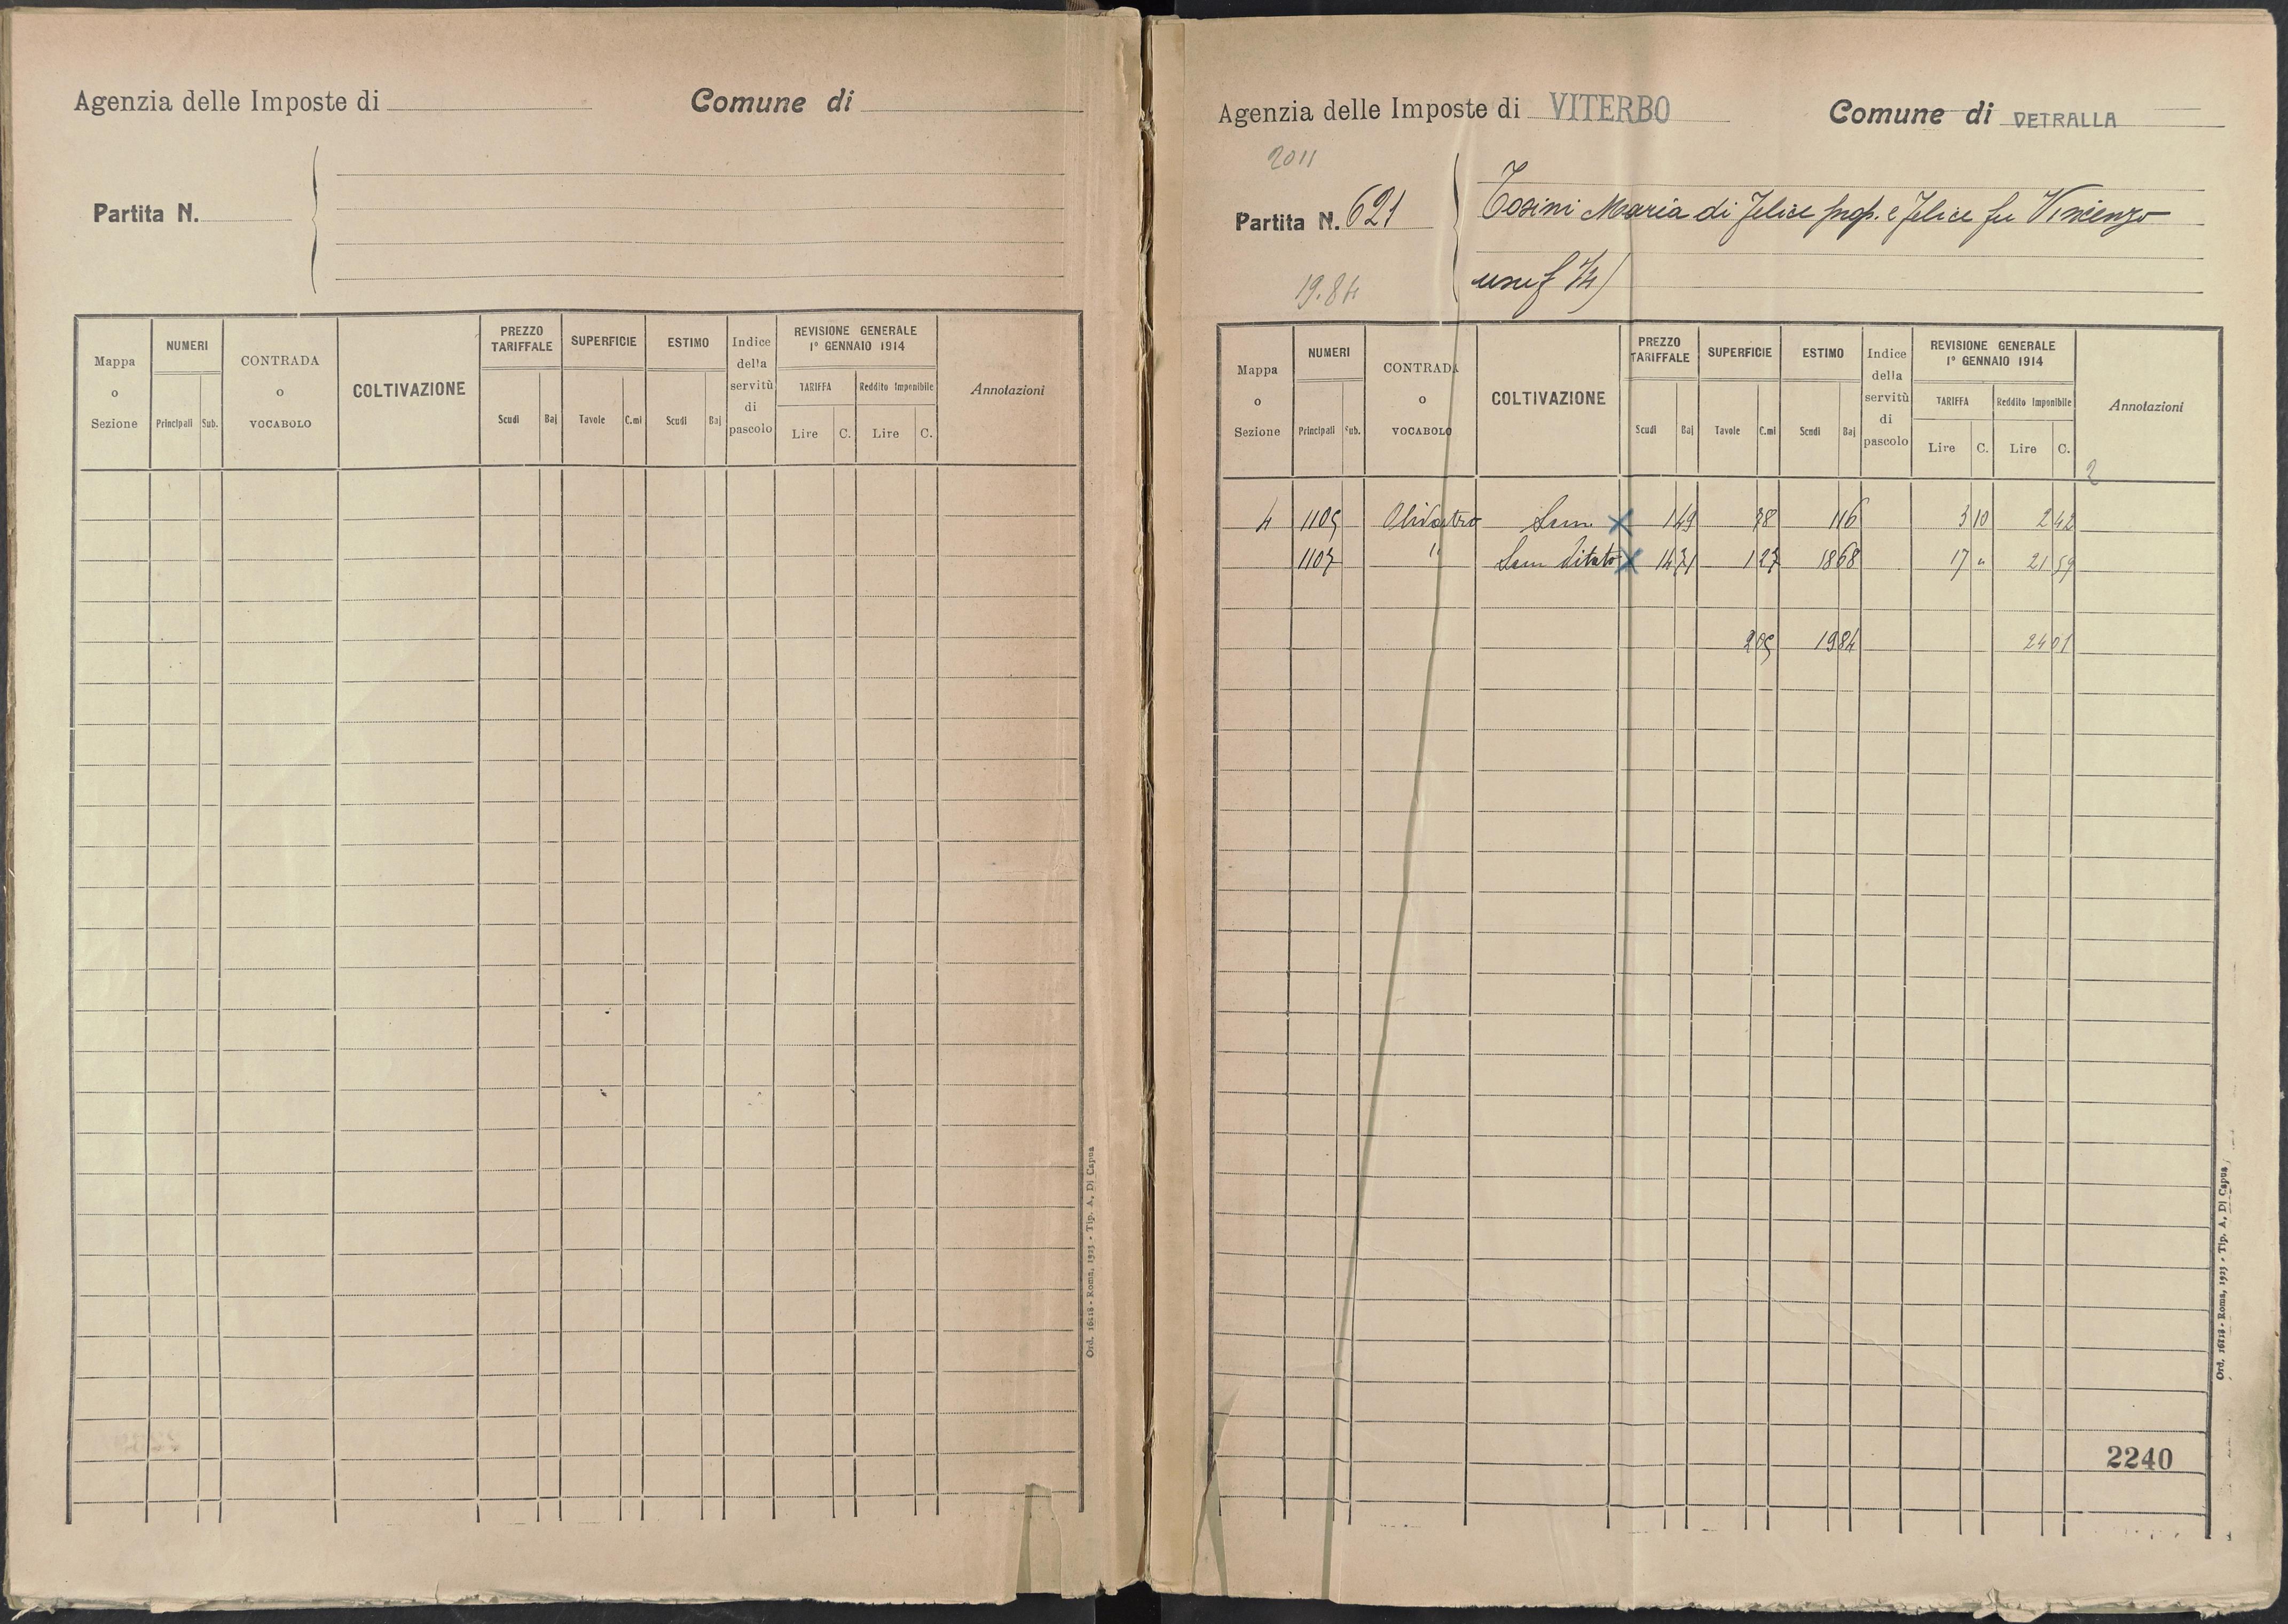 Agenzia delle Imposte di
Comune di
Partita N.
Mappa o Sezione
NUMERI
Principali Sub.
CONTRADA o VOCABOLO
COLTIVAZIONE
PREZZO TARIFFALE
Scudi Baj
SUPERFICIE
Tavole C.mi
ESTIMO
Scudi Baj
Indice della servitù di pascolo
REVISIONE GENERALE
1º GENNAIO 1914
TARIFFA
Lire C.
Reddito Imponibile
Lire C.
Annotazioni
Ord. 16118 - Roma, 1923 - Tip. A. Di Capua
Agenzia delle Imposte di VITERBO
Comune di VETRALLA
2011
Partita N. 621
Tosini Maria di Felice prop. e Felice fu Vincenzo
usuf 1/4)
19.84
Mappa o Sezione
NUMERI
Principali Sub.
CONTRADA o VOCABOLO
COLTIVAZIONE
PREZZO TARIFFALE
Scudi Baj
SUPERFICIE
Tavole C.mi
ESTIMO
Scudi Baj
Indice della servitù di pascolo
REVISIONE GENERALE
1º GENNAIO 1914
TARIFFA
Lire C.
Reddito Imponibile
Lire C.
Annotazioni
2
4 1105 Olivastro Sem. 1 49 78 1 16 3 10 2 42
1107 " Sem vitato 14 71 1 27 18 68 17 " 21 59
2 05 19 84 24 01
2240
Ord. 16118 - Roma, 1923 - Tip. A. Di Capua